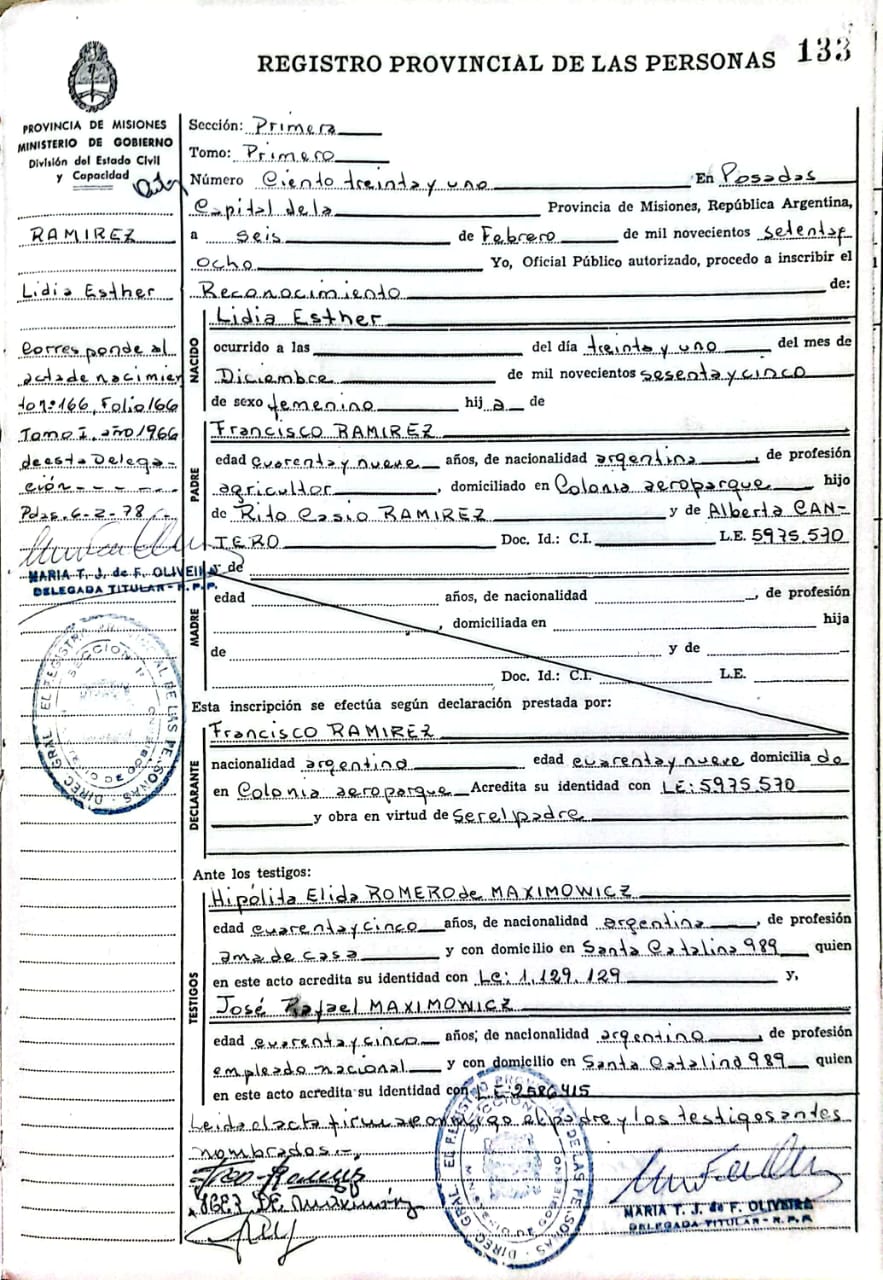 REGISTRO PROVINCIAL DE LAS PERSONAS 133
PROVINCIA DE MISIONES
MINISTERIO DE GOBIERNO
División del Estado Civil
y Capacidad
RAMIREZ
Lidia Esther
Corresponde al
acta de nacimien
to nº 166, Folio 166
Tomo I, año 1966
de esta Delega-
ción - - - - -
Pdas. 6-2-78.-
MARIA T. J. de F. OLIVEIRA
DELEGADA TITULAR - R.P.P.
Sección: Primera
Tomo: Primero
Número Ciento treinta y uno En Posadas
Capital de la Provincia de Misiones, República Argentina,
a seis de Febrero de mil novecientos setenta y
ocho Yo, Oficial Público autorizado, procedo a inscribir el
Reconocimiento de:
NACIDO
Lidia Esther
ocurrido a las del día treinta y uno del mes de
Diciembre de mil novecientos sesenta y cinco
de sexo femenino hij a de
PADRE
Francisco RAMIREZ
edad cuarenta y nueve años, de nacionalidad argentina, de profesión
agricultor, domiciliado en Colonia aeroparque hijo
de Rito Casio RAMIREZ y de Alberta CAN-
TERO Doc. Id.: C.I. L.E. 5975.570
MADRE
y de
edad años, de nacionalidad , de profesión
, domiciliada en hija
de y de
Doc. Id.: C.I. L.E.
Esta inscripción se efectúa según declaración prestada por:
DECLARANTE
Francisco RAMIREZ
nacionalidad argentino edad cuarenta y nueve domicilia do
en Colonia aeroparque Acredita su identidad con LE: 5975.570
y obra en virtud de Ser el padre
Ante los testigos:
TESTIGOS
Hipólita Elida ROMERO de MAXIMOWICZ
edad cuarenta y cinco años, de nacionalidad argentina, de profesión
ama de casa y con domicilio en Santa Catalina 989 quien
en este acto acredita su identidad con Lc: 1.129.129 y,
José Rafael MAXIMOWICZ
edad cuarenta y cinco años, de nacionalidad argentino, de profesión
empleado nacional y con domicilio en Santa Catalina 989 quien
en este acto acredita su identidad con LE: 2586415
Leida el acta firma conmigo el padre y los testigos antes
nombrados.-
MARIA T. J. de F. OLIVEIRA
DELEGADA TITULAR - R.P.P.